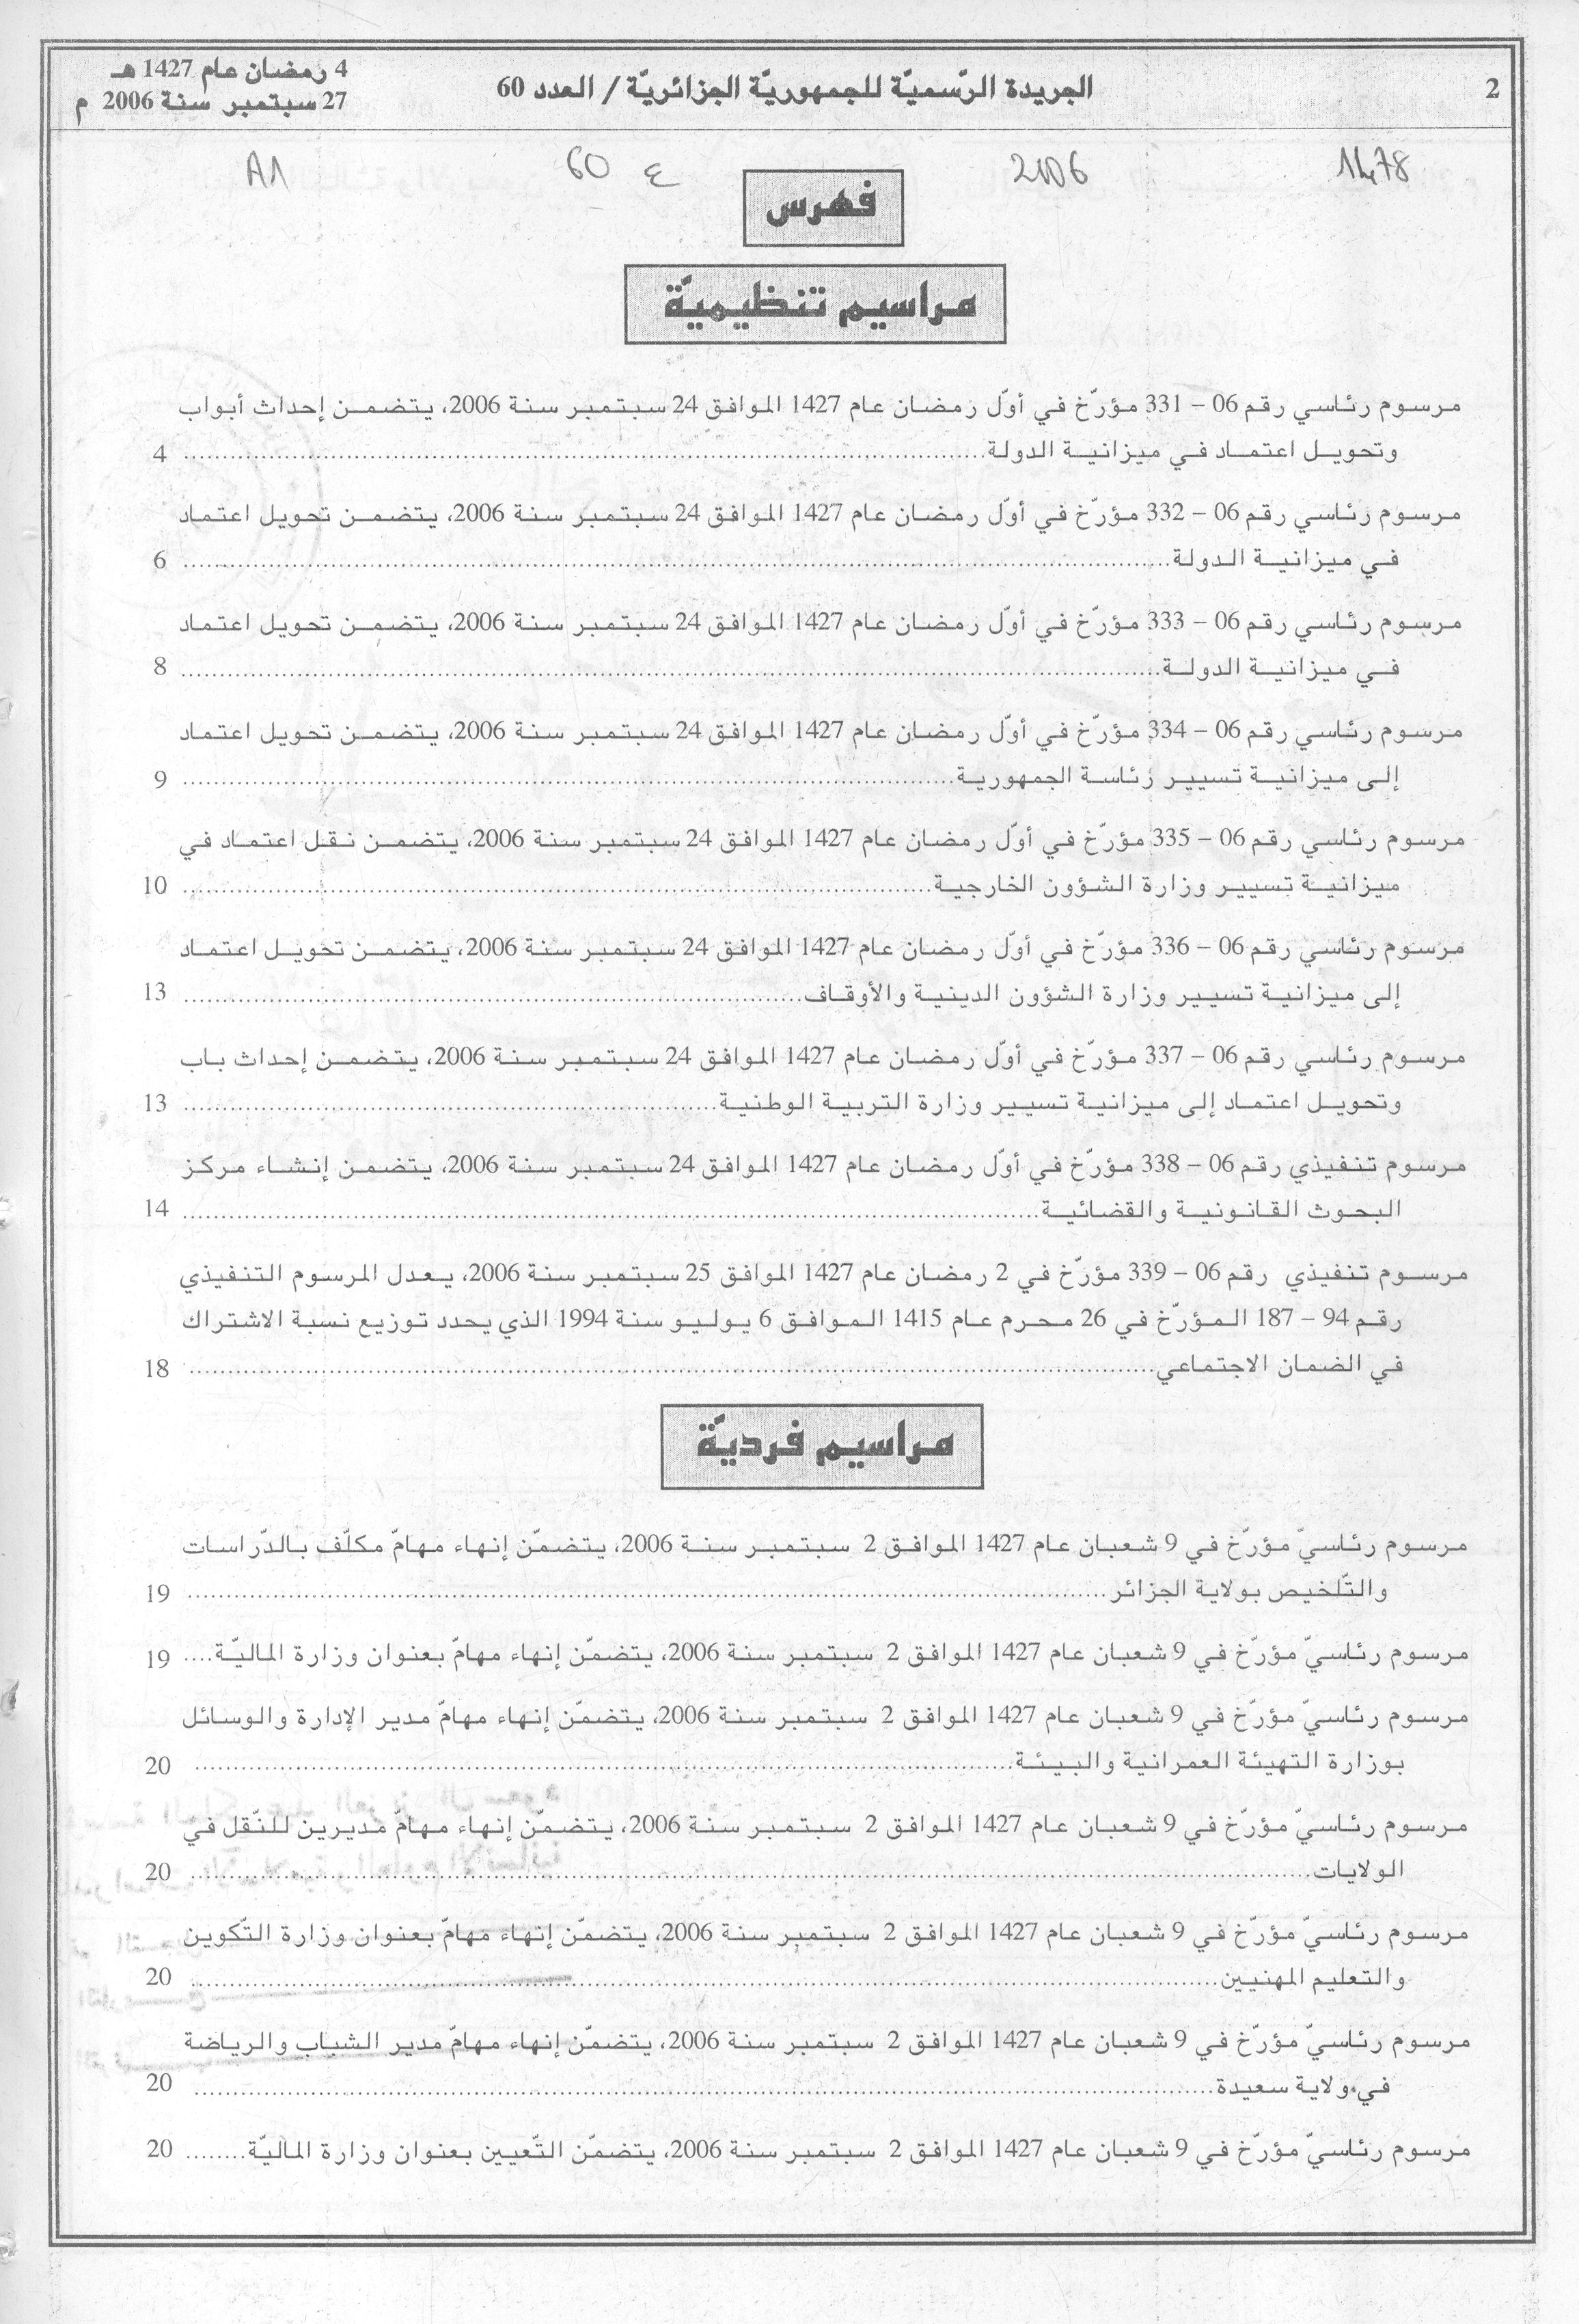 2
الجريدة الرّسميّة للجمهوريّة الجزائريّة / العدد 60
4 رمضان عام 1427 هـ
27 سبتمبر سنة 2006 م
1478
2006
60 ع
A1
فهرس
مراسيم تنظيميّة
مرسوم رئاسي رقم 06 – 331 مؤرّخ في أوّل رمضان عام 1427 الموافق 24 سبتمبر سنة 2006، يتضمن إحداث أبواب
وتحويل اعتماد في ميزانية الدولة........ 4
مرسوم رئاسي رقم 06 – 332 مؤرّخ في أوّل رمضان عام 1427 الموافق 24 سبتمبر سنة 2006، يتضمن تحويل اعتماد
في ميزانية الدولة........ 6
مرسوم رئاسي رقم 06 – 333 مؤرّخ في أوّل رمضان عام 1427 الموافق 24 سبتمبر سنة 2006، يتضمن تحويل اعتماد
في ميزانية الدولة........ 8
مرسوم رئاسي رقم 06 – 334 مؤرّخ في أوّل رمضان عام 1427 الموافق 24 سبتمبر سنة 2006، يتضمن تحويل اعتماد
إلى ميزانية تسيير رئاسة الجمهورية........ 9
مرسوم رئاسي رقم 06 – 335 مؤرّخ في أوّل رمضان عام 1427 الموافق 24 سبتمبر سنة 2006، يتضمن نقل اعتماد في
ميزانية تسيير وزارة الشؤون الخارجية........ 10
مرسوم رئاسي رقم 06 – 336 مؤرّخ في أوّل رمضان عام 1427 الموافق 24 سبتمبر سنة 2006، يتضمن تحويل اعتماد
إلى ميزانية تسيير وزارة الشؤون الدينية والأوقاف........ 13
مرسوم رئاسي رقم 06 – 337 مؤرّخ في أوّل رمضان عام 1427 الموافق 24 سبتمبر سنة 2006، يتضمن إحداث باب
وتحويل اعتماد إلى ميزانية تسيير وزارة التربية الوطنية........ 13
مرسوم تنفيذي رقم 06 – 338 مؤرّخ في أوّل رمضان عام 1427 الموافق 24 سبتمبر سنة 2006، يتضمن إنشاء مركز
البحوث القانونية والقضائية........ 14
مرسوم تنفيذي رقم 06 – 339 مؤرّخ في 2 رمضان عام 1427 الموافق 25 سبتمبر سنة 2006، يعدل المرسوم التنفيذي
رقم 94 – 187 المؤرّخ في 26 محرم عام 1415 الموافق 6 يوليو سنة 1994 الذي يحدد توزيع نسبة الاشتراك
في الضمان الاجتماعي........ 18
مراسيم فرديّة
مرسوم رئاسيّ مؤرّخ في 9 شعبان عام 1427 الموافق 2 سبتمبر سنة 2006، يتضمّن إنهاء مهامّ مكلّف بالدّراسات
والتّلخيص بولاية الجزائر........ 19
مرسوم رئاسيّ مؤرّخ في 9 شعبان عام 1427 الموافق 2 سبتمبر سنة 2006، يتضمّن إنهاء مهامّ بعنوان وزارة الماليّة.... 19
مرسوم رئاسيّ مؤرّخ في 9 شعبان عام 1427 الموافق 2 سبتمبر سنة 2006، يتضمّن إنهاء مهامّ مدير الإدارة والوسائل
بوزارة التهيئة العمرانية والبيئة........ 20
مرسوم رئاسيّ مؤرّخ في 9 شعبان عام 1427 الموافق 2 سبتمبر سنة 2006، يتضمّن إنهاء مهامّ مديرين للنّقل في
الولايات........ 20
مرسوم رئاسيّ مؤرّخ في 9 شعبان عام 1427 الموافق 2 سبتمبر سنة 2006، يتضمّن إنهاء مهامّ بعنوان وزارة التّكوين
والتعليم المهنيين........ 20
مرسوم رئاسيّ مؤرّخ في 9 شعبان عام 1427 الموافق 2 سبتمبر سنة 2006، يتضمّن إنهاء مهامّ مدير الشباب والرياضة
في ولاية سعيدة........ 20
مرسوم رئاسيّ مؤرّخ في 9 شعبان عام 1427 الموافق 2 سبتمبر سنة 2006، يتضمّن التّعيين بعنوان وزارة الماليّة........ 20